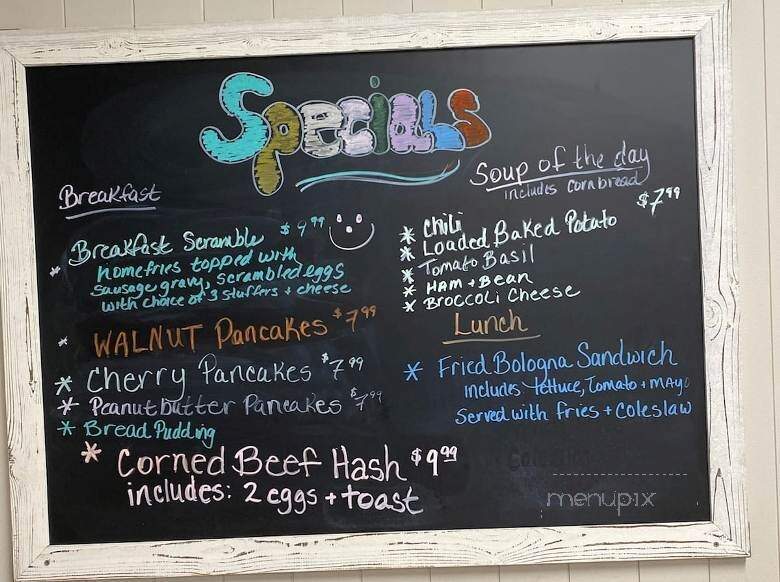 Specials
Breakfast
* Breakfast Scramble $9.99
homefries topped with
sausage gravy, scrambled eggs
with choice of 3 stuffers + cheese
* WALNUT Pancakes $7.99
* Cherry Pancakes $7.99
* Peanutbutter Pancakes $7.99
* Bread Pudding
* Corned Beef Hash $9.99
includes: 2 eggs + toast
Soup of the day
includes cornbread
$7.99
* Chili
* Loaded Baked Potato
* Tomato Basil
* HAM + Bean
* Broccoli Cheese
Lunch
* Fried Bologna Sandwich
includes lettuce, Tomato + mayo
Served with fries + Coleslaw
menupix